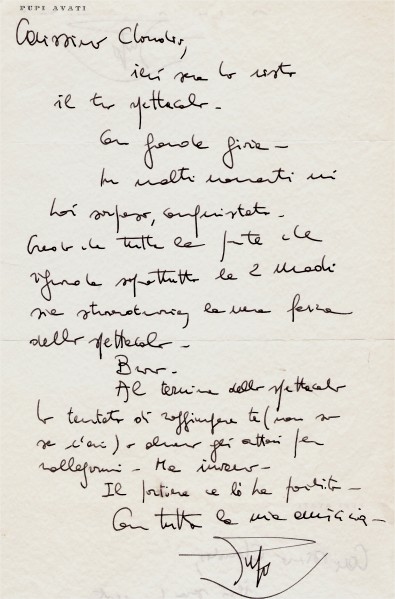 PUPI AVATI
Carissimo Claudio,
ieri sera ho visto
il tuo spettacolo -
Con grande gioia -
In molti momenti mi
hai sorpreso, conquistato -
Credo che tutta la parte che
riguarda soprattutto le 2 madi
sia straordinaria, la vera forza
dello spettacolo -
Bravo -
Al termine dello spettacolo
ho tentato di raggiungere te (non so
se c'eri) o almeno gli attori per
rallegrarmi - Ma invano -
Il portiere ce lo ha proibito -
Con tutta la mia amicizia -
Pupi